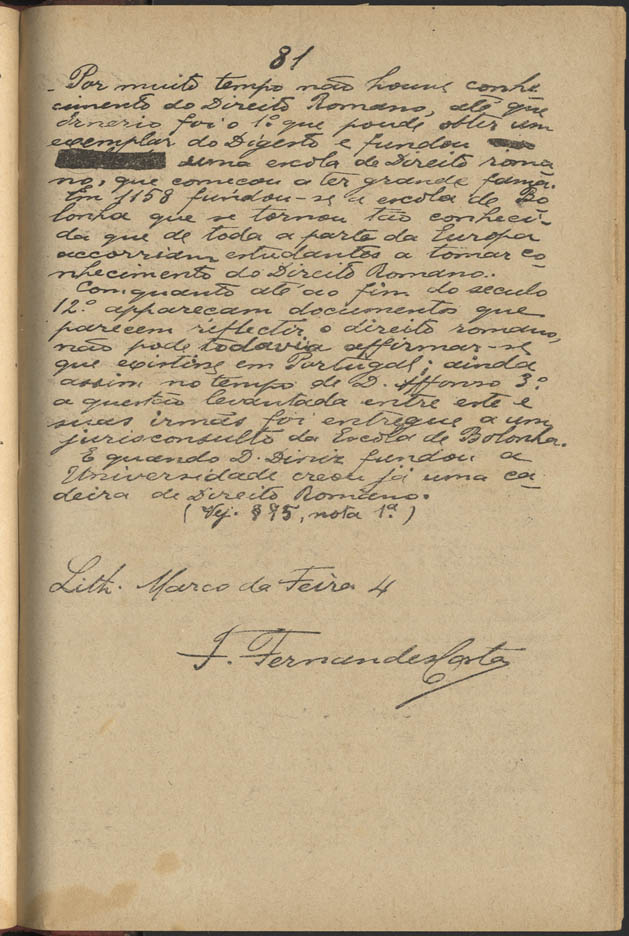 81
Por muito tempo não houve conhe
cimento do Direito Romano, até que
Irnerio foi o 1.º que poude obter um
exemplar do Digesto e fundou
uma escola de Direito roma
no, que começou a ter grande fama.
Em 1158 fundou-se a escola de Bo
lonha que se tornou tão conheci-
da que de toda a parte da Europa
accorriam estudantes a tomar co-
nhecimento do Direito Romano.
Comquanto até ao fim do seculo
12.º appareçam documentos que
parecem reflectir o direito romano,
não póde todavia affirmar-se
que existisse em Portugal; ainda
assim no tempo de D. Affonso 3.º
a questão levantada entre este e
suas irmãs foi entregue a um
jurisconsulto da Escola de Bolonha.
E quando D. Diniz fundou a
Universidade creou já uma ca-
deira de Direito Romano.
(Vej. § 95, nota 1.ª)
Lith. Marco da Feira 4
F. Fernandes Costa